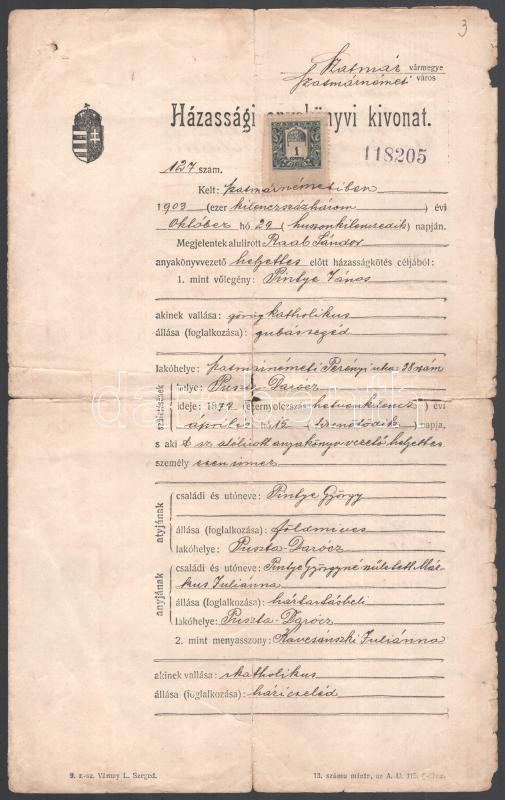 3
Szatmár vármegye
Szatmárnémeti város
Házassági anyakönyvi kivonat.
1
118205
127 szám.
Kelt: szatmárnémetiben
1903 (ezer kilenczszázhárom) évi
Október hó 29 (huszonkilenczedik) napján.
Megjelentek alulirott Raab Sándor
anyakönyvvezető helyettes előtt házasságkötés céljából:
1. mint vőlegény: Pintye János
akinek vallása: görög katholikus
állása (foglalkozása): gubássegéd
lakóhelye: szatmárnémeti Perényi utcza 38 szám
születésének
helye: Puszta-Darócz
ideje: 1879 (ezernyolcszáz hetvenkilencz) évi
április hó 15 (tizenötödik) napja,
s aki az alólirott anyakönyvvezető helyettes
személyesen ismer
atyjának
családi és utóneve: Pintye György
állása (foglalkozása): földmíves
lakóhelye: Puszta-Darócz
anyjának
családi és utóneve: Pintye Györgyné született Már-
kus Juliánna
állása (foglalkozása): háztartásbeli
lakóhelye: Puszta-Darócz
2. mint menyasszony: Juliánna
akinek vallása: r katholikus
állása (foglalkozása): házicseléd
9. r.-sz. Várnay L. Szeged.
13. számu minta, az A. U.
darabanth